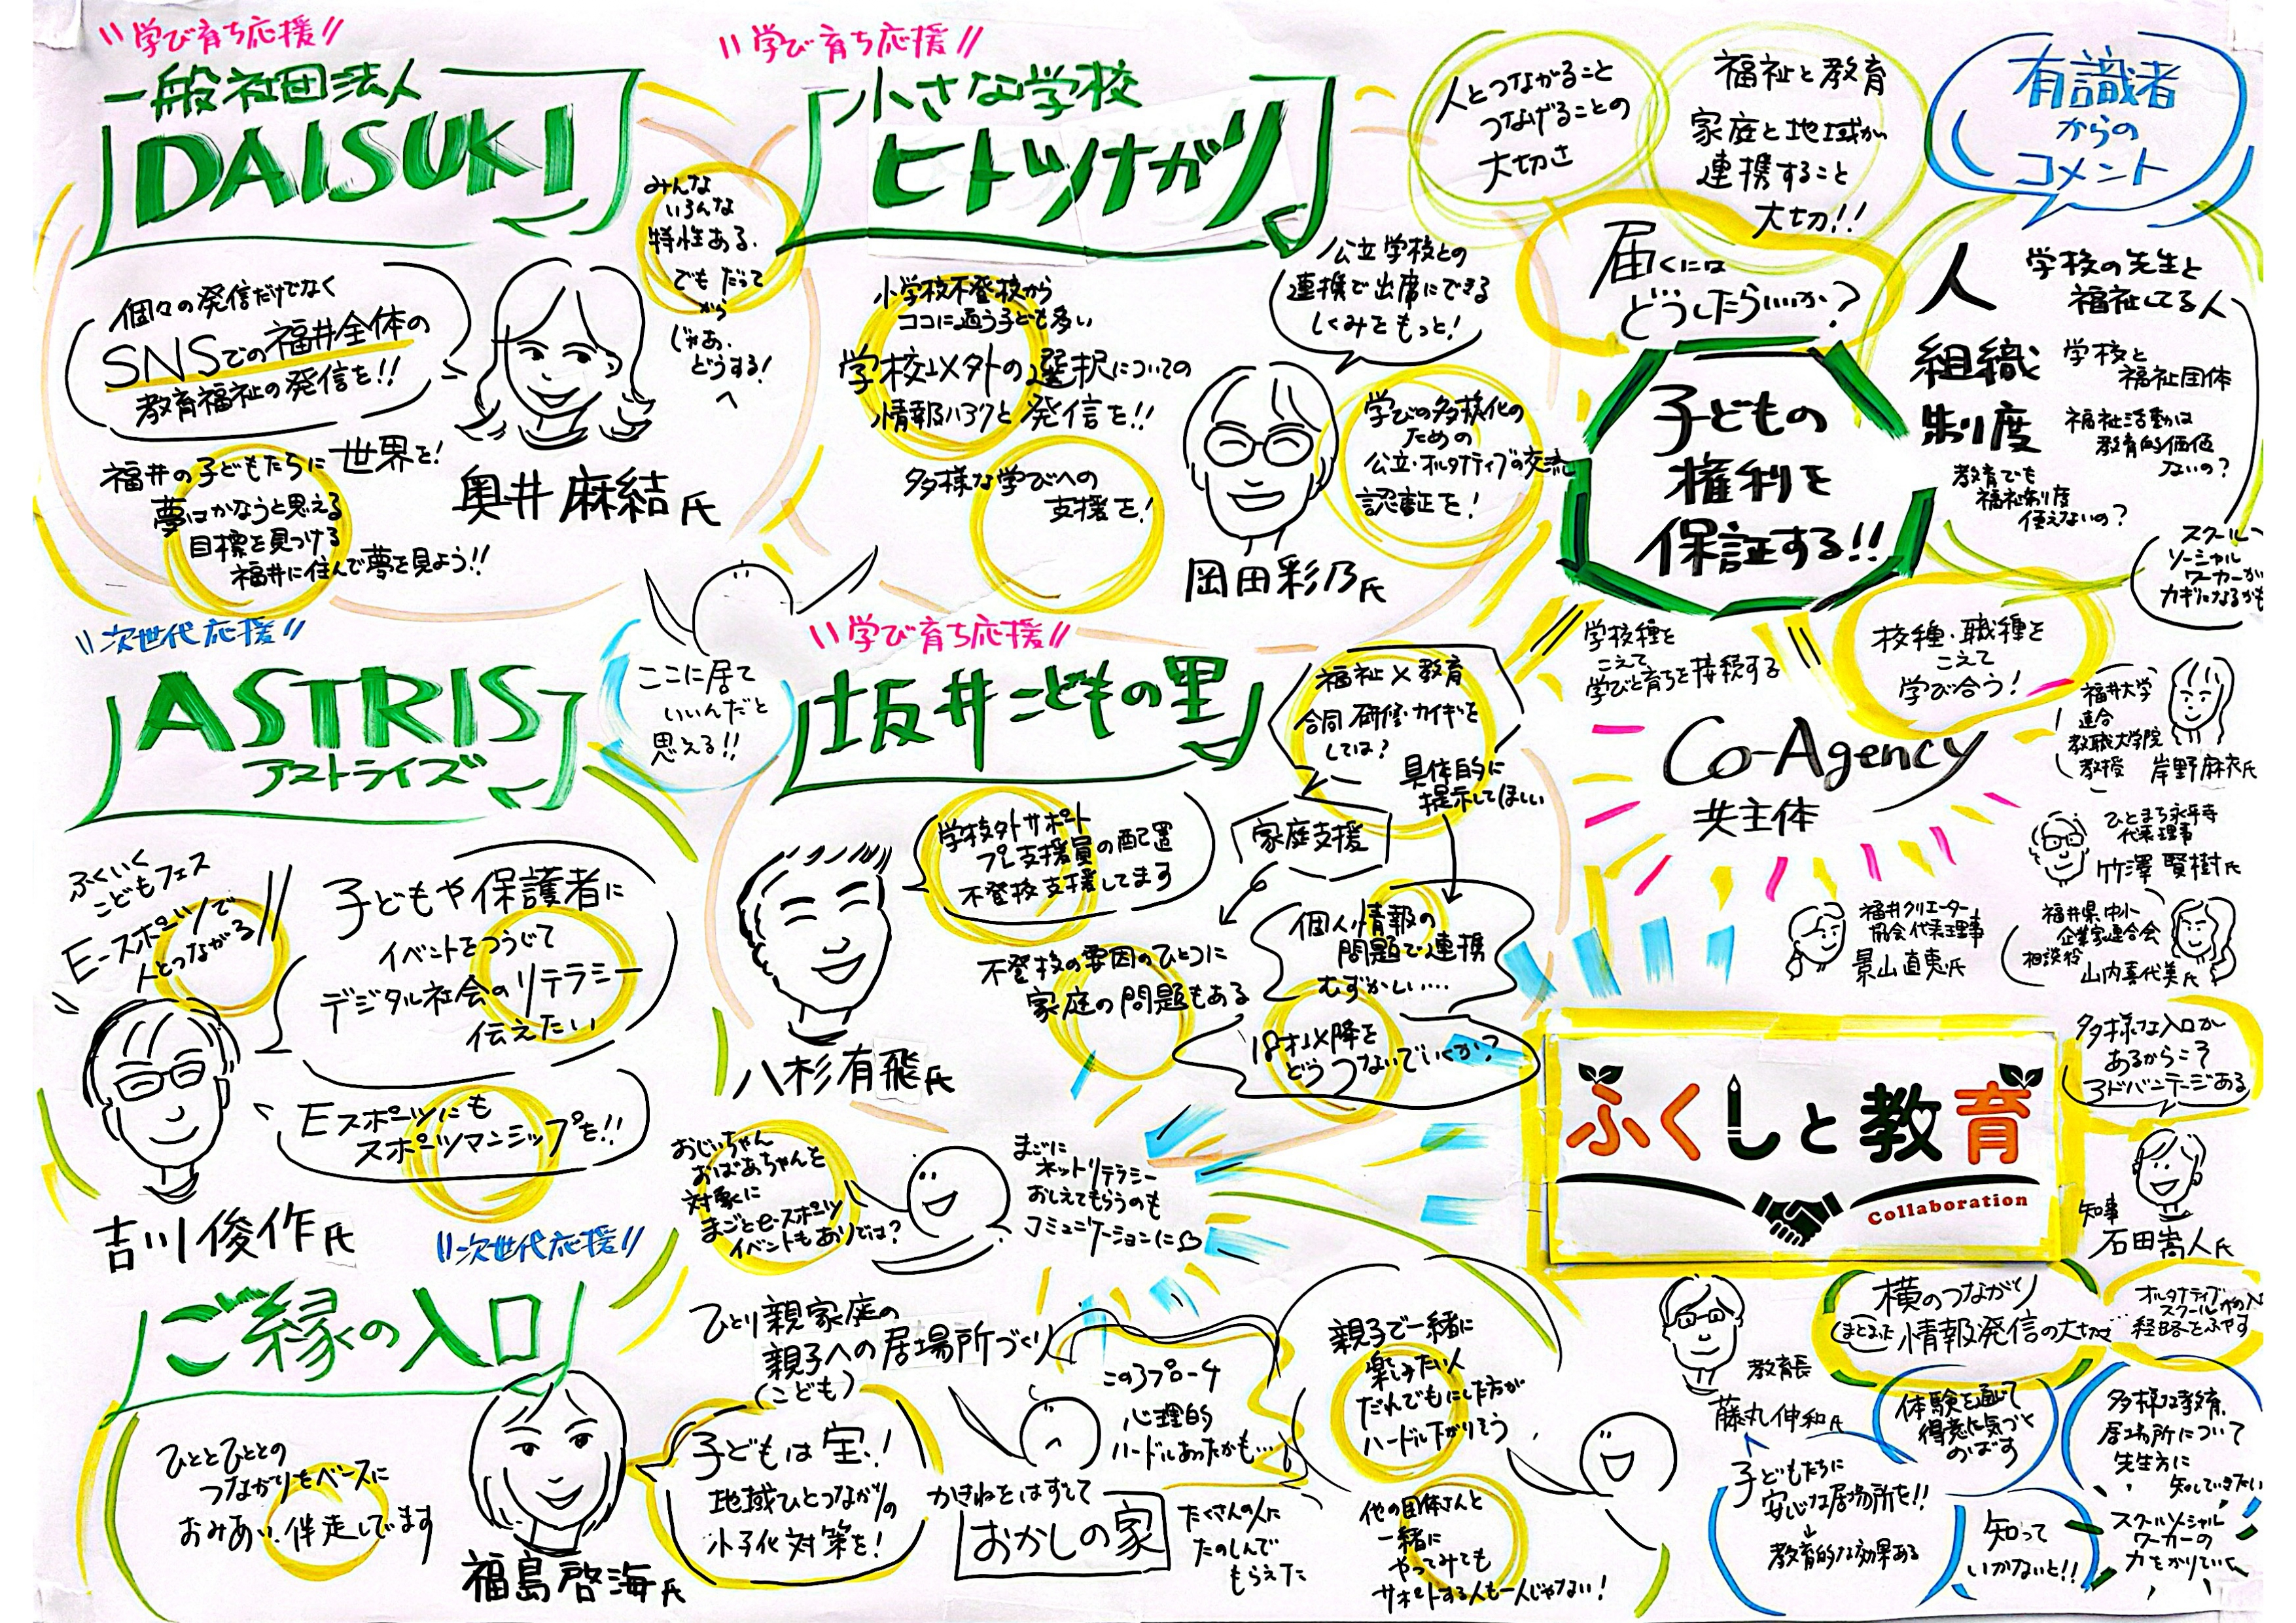 学び育ち応援
一般社団法人
DAISUKI
個々の発信だけでなく
SNSでの福井全体の
教育福祉の発信を!!
奥井麻結氏
福井の子どもたちに世界を!
夢はかなうと思える
目標を見つける
福井に住んで夢を見よう!!
みんな
いろんな
特性ある.
でも だって
から
じゃあ、
どうする!
へ
学び育ち応援
小さな学校
ヒトツナガリ
小学校不登校から
ココに通う子ども多い
学校以外の選択についての
情報ハアクと発信を!!
多様な学びへの
支援を!
公立学校との
連携で出席にできる
しくみをもっと!
学びの多様化の
ための
公立・オルタナティブの交流
認証を!
岡田彩乃氏
人とつながること
つなげることの
大切さ
福祉と教育
家庭と地域が
連携すること
大切!!
有識者
からの
コメント
届くには
どうしたらいいか?
子どもの
権利を
保証する!!
人
学校の先生と
福祉してる人
組織
学校と
福祉団体
制度
福祉活動は
教育的価値
ないの?
教育でも
福祉制度
使えないの?
スクール
ソーシャル
ワーカーが
カギになるかも
学校種を
こえて
学びと育ちを接続する
校種・職種を
こえて
学び合う!
Co-Agency
共主体
福井大学
連合
教職大学院
教授 岸野麻衣氏
ひとまち永平寺
代表理事
竹澤賢樹氏
福井クリエーター
協会代表理事
景山直恵氏
福井県中小
企業家連合会
相談役
山内喜代美氏
次世代応援
ASTRIS
アストライズ
ここに居て
いいんだと
思える!!
ふくいく
こどもフェス
E-スポーツで
人とつながる
子どもや保護者に
イベントをつうじて
デジタル社会のリテラシー
伝えたい
Eスポーツにも
スポーツマンシップを!!
吉川俊作氏
学び育ち応援
坂井こどもの里
福祉×教育
合同研修・カイギを
しては?
具体的に
提示してほしい
学校外サポート
プレ支援員の配置
不登校支援してます
家庭支援
不登校の要因のひとつに
家庭の問題もある
個人情報の
問題で連携
むずかしい…
18才以降を
どうつないでいくか?
八杉有飛氏
おじいちゃん
おばあちゃんを
対象に
まごとe-スポーツ
イベントもありでは?
まごに
ネットリテラシー
おしえてもらうのも
コミュニケーションに
ふくしと教育
Collaboration
多様な入口が
あるからこそ
アドバンテージある
知事
石田嵩人氏
次世代応援
ご縁の入口
ひととひととの
つながりをベースに
おみあい、伴走してます
福島啓海氏
ひとり親家庭の
親子への居場所づくり
(こども)
子どもは宝!
地域ひとつながりの
少子化対策を!
このアプローチ
心理的
ハードルあったかも…
かきねをはずして
おかしの家
たくさんの人に
たのしんで
もらえた
親子で一緒に
楽しみたい人
だれでもにした方が
ハードル下がりそう
他の団体さんと
一緒に
やってみても
サポートする人も一人じゃない!
教育長
藤丸伸和氏
横のつながり
まとまった情報発信の大切さ
オルタナティブ
スクールへの入
経路をふやす
体験を通じて
得意に気づく
のばす
多様な教育、
居場所について
先生方に
知していきたい
子どもたちに
安心な居場所を!!
教育的な効果ある
知って
いかないと!!
スクールソーシャル
ワーカーの
力をかりていく